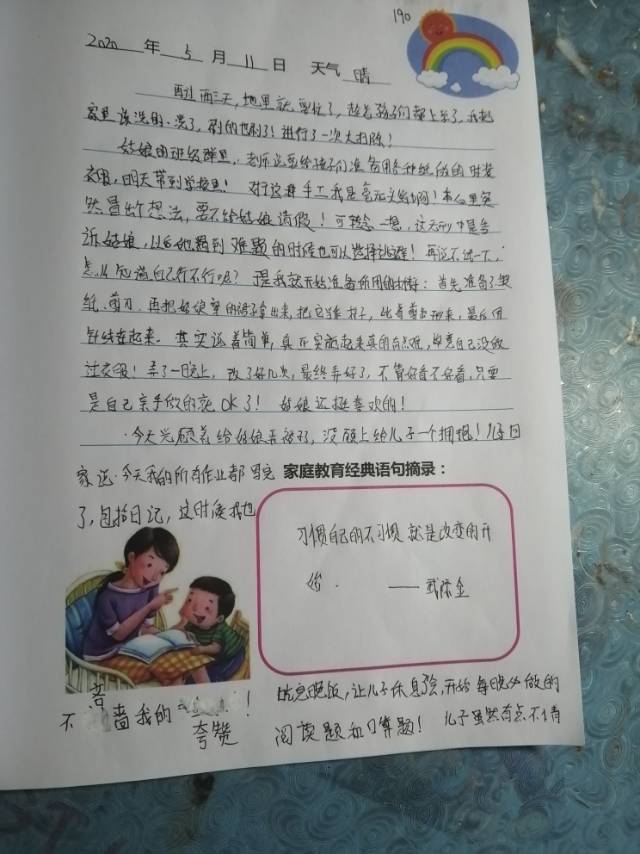 190
2020 年 5 月 11 日 天气 晴
再过两三天,地里就要忙了,趁着孩子们都上学了,我把
家里该洗的洗了,刷的也刷了!进行了一次大扫除!
姑娘的班级群里,老师说要给孩子们准备用各种纸做的时装
衣服,明天带到学校里!对于这种手工我是毫无头绪啊!本心里突
然冒出个想法,要不给姑娘请假!可转念一想,这无形中是告
诉姑娘,以后她遇到难题的时候也可以选择逃避!再说不试一下,
怎么知道自己行不行呢?于是我就开始准备所用的材料:首先准备了
纸、剪刀,再把姑娘穿的裙子拿出来,把它当样子,比着剪出形来,最后用
针线连起来。其实说着简单,真正实施起来真的有点难,毕竟自己没做
过衣服!弄了一晚上,改了好几次,最终弄好了,不管好看不好看,只要
是自己亲手做的就OK了!姑娘还挺喜欢的!
今天光顾着给姑娘弄衣服,没顾上给儿子一个拥抱!儿子回
家说:今天我的所有作业都写完
了,包括日记,这时候我也
家庭教育经典语句摘录:
习惯自己的不习惯 就是改变的开
始。
不吝啬我的 夸赞!
吃完晚饭,让儿子休息会,开始每晚必做的
阅读题和口算题!儿子虽然有点不情